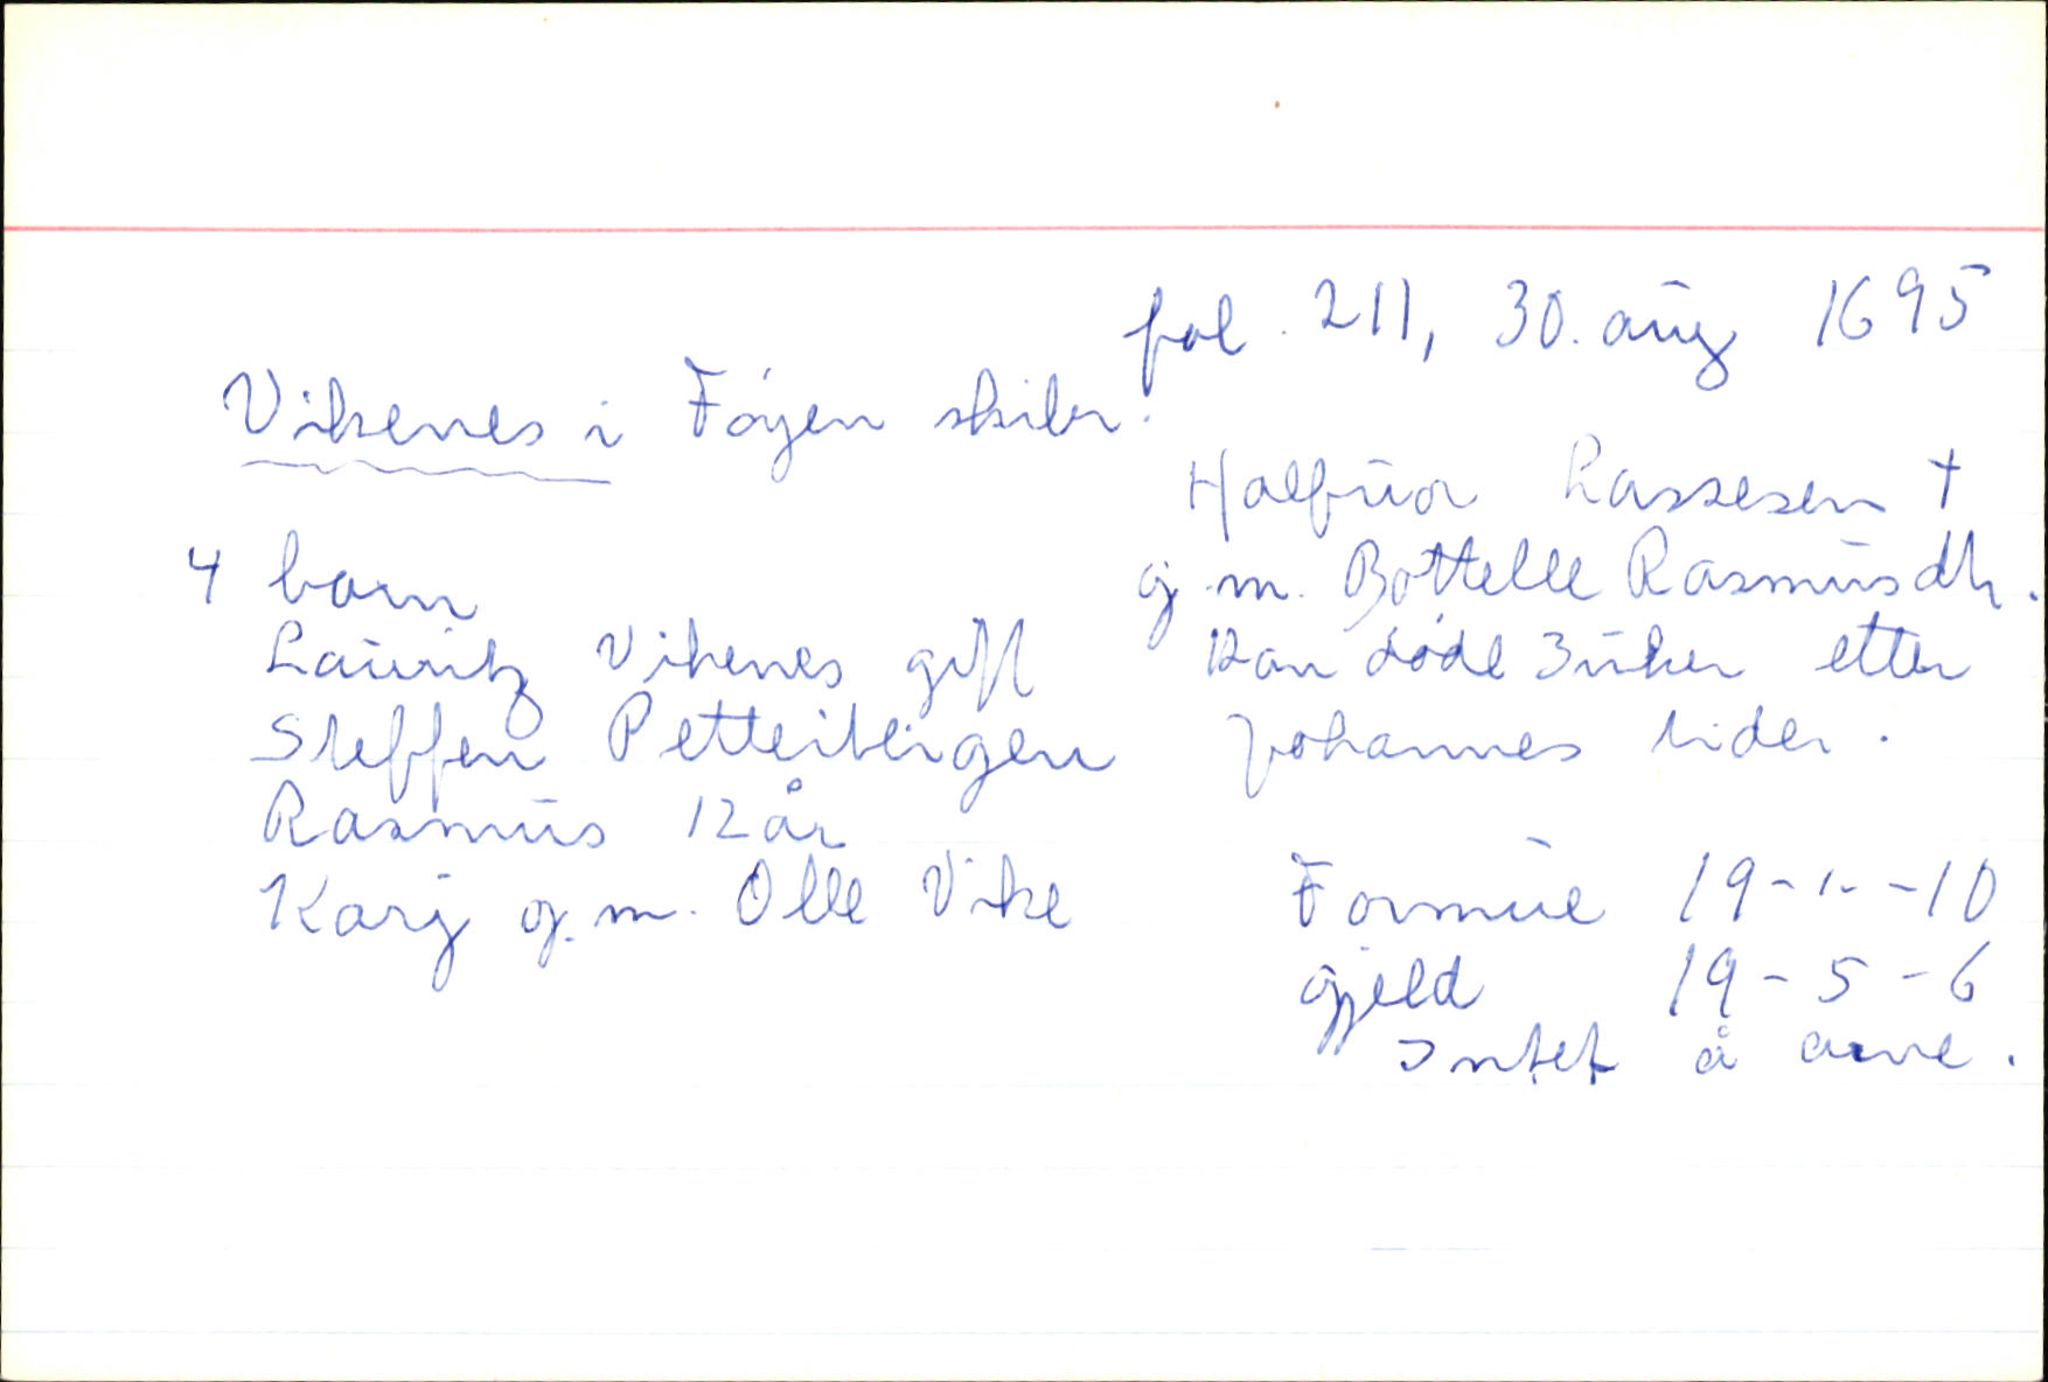 fol. 211, 30. aug 1695
Vikenes i Føyen skibr.
Halfuor Lassesen †
g.m. Bottelle Rasmusdtr.
Han døde 3 uker etter
Johannes tider.
4 barn
Lauritz Vikenes gift
Steffen Petterteigen
Rasmus 12 år
Karj g.m. Olle Vike
Formue 19-"-10
gjeld 19-5-6
Intet å arve.